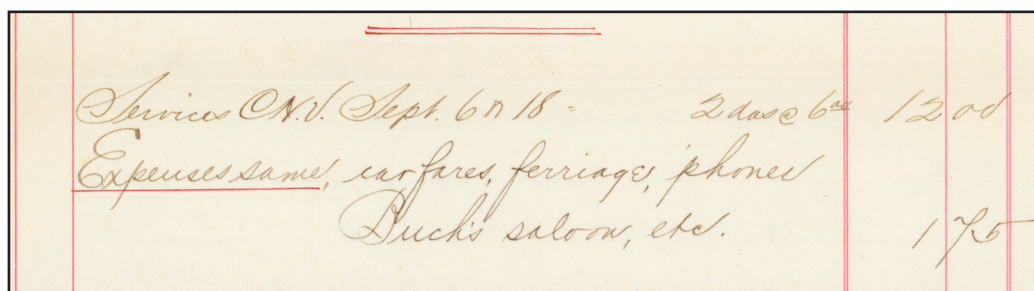 Services C.N.V. Sept. 6 & 18 = 2 das @ 6 00 12 00
Expenses same, carfares, ferriage, 'phones
Buch's saloon, etc. 1 75